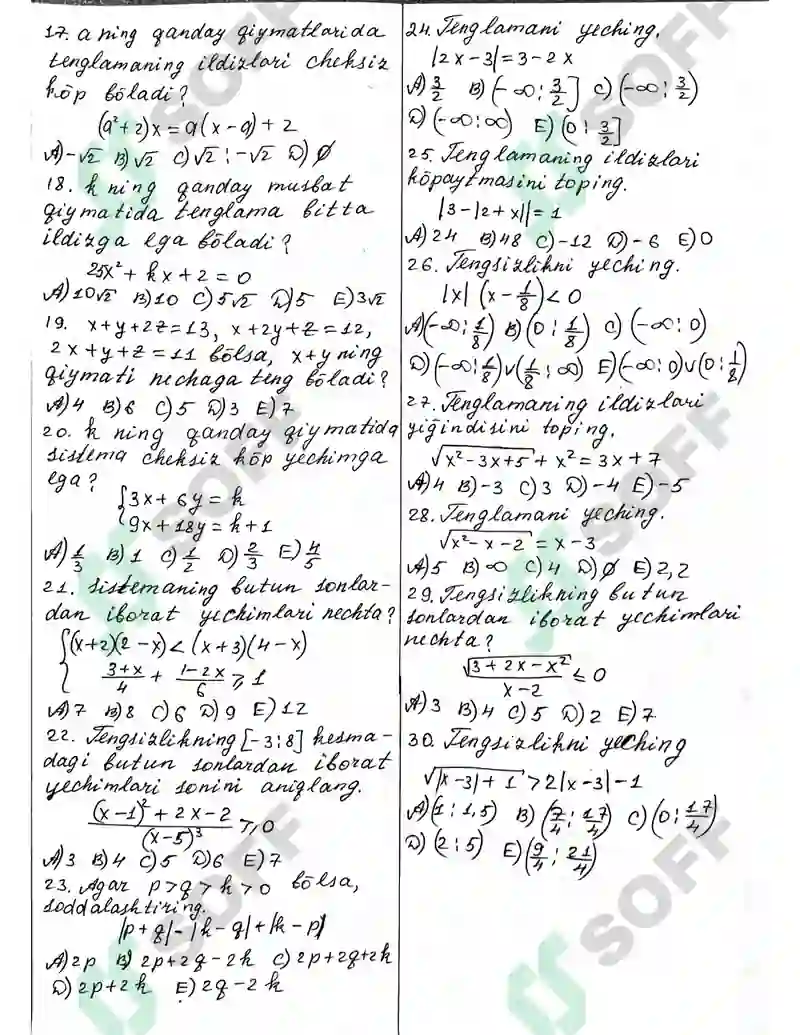 17. a ning qanday qiymatlarida
tenglamaning ildizlari cheksiz
kōp bōladi?
(a²+2)x = a(x-a)+2
A) -√2 B) √2 C) √2; -√2 D) ∅
18. k ning qanday musbat
qiymatida tenglama bitta
ildizga ega bōladi?
25x² + kx + 2 = 0
A) 10√2 B) 10 C) 5√2 D) 5 E) 3√2
19. x+y+2z=13, x+2y+z=12,
2x+y+z=11 bōlsa, x+y ning
qiymati nechaga teng bōladi?
A) 4 B) 6 C) 5 D) 3 E) 7
20. k ning qanday qiymatida
sistema cheksiz kōp yechimga
ega?
{3x + 6y = k
9x + 18y = k+1
A) 1/3 B) 1 C) 1/2 D) 2/3 E) 4/5
21. Sistemaning butun sonlar-
dan iborat yechimlari nechta?
{(x+2)(2-x) < (x+3)(4-x)
(3+x)/4 + (1-2x)/6 ⩾ 1
A) 7 B) 8 C) 6 D) 9 E) 12
22. Tengsizlikning [-3; 8] kesma-
dagi butun sonlardan iborat
yechimlari sonini aniqlang.
((x-1)² + 2x - 2)/(x-5)³ ⩾ 0
A) 3 B) 4 C) 5 D) 6 E) 7
23. Agar p > q > k > 0 bōlsa,
soddalashtiring.
|p+q| - |k-q| + |k-p|
A) 2p B) 2p+2q-2k C) 2p+2q+2k
D) 2p+2k E) 2q-2k
24. Tenglamani yeching.
|2x-3| = 3-2x
A) 3/2 B) (-∞; 3/2] C) (-∞; 3/2)
D) (-∞; ∞) E) (0; 3/2]
25. Tenglamaning ildizlari
kōpaytmasini toping.
|3-|2+x|| = 1
A) 24 B) 48 C) -12 D) -6 E) 0
26. Tengsizlikni yeching.
|x| (x - 1/8) < 0
A) (-∞; 1/8) B) (0; 1/8) C) (-∞; 0)
D) (-∞; 1/8)∪(1/8; ∞) E) (-∞; 0)∪(0; 1/8)
27. Tenglamaning ildizlari
yiğindisini toping.
√(x²-3x+5) + x² = 3x+7
A) 4 B) -3 C) 3 D) -4 E) -5
28. Tenglamani yeching.
√(x²-x-2) = x-3
A) 5 B) ∞ C) 4 D) ∅ E) 2,2
29. Tengsizlikning butun
sonlardan iborat yechimlari
nechta?
√(3+2x-x²)/(x-2) ⩽ 0
A) 3 B) 4 C) 5 D) 2 E) 7
30. Tengsizlikni yeching
√(|x-3|+1) > 2|x-3|-1
A) (1; 1,5) B) (7/4; 17/4) C) (0; 17/4)
D) (2; 5) E) (9/4; 21/4)
SOFF
SOFF
SOFF
SOFF